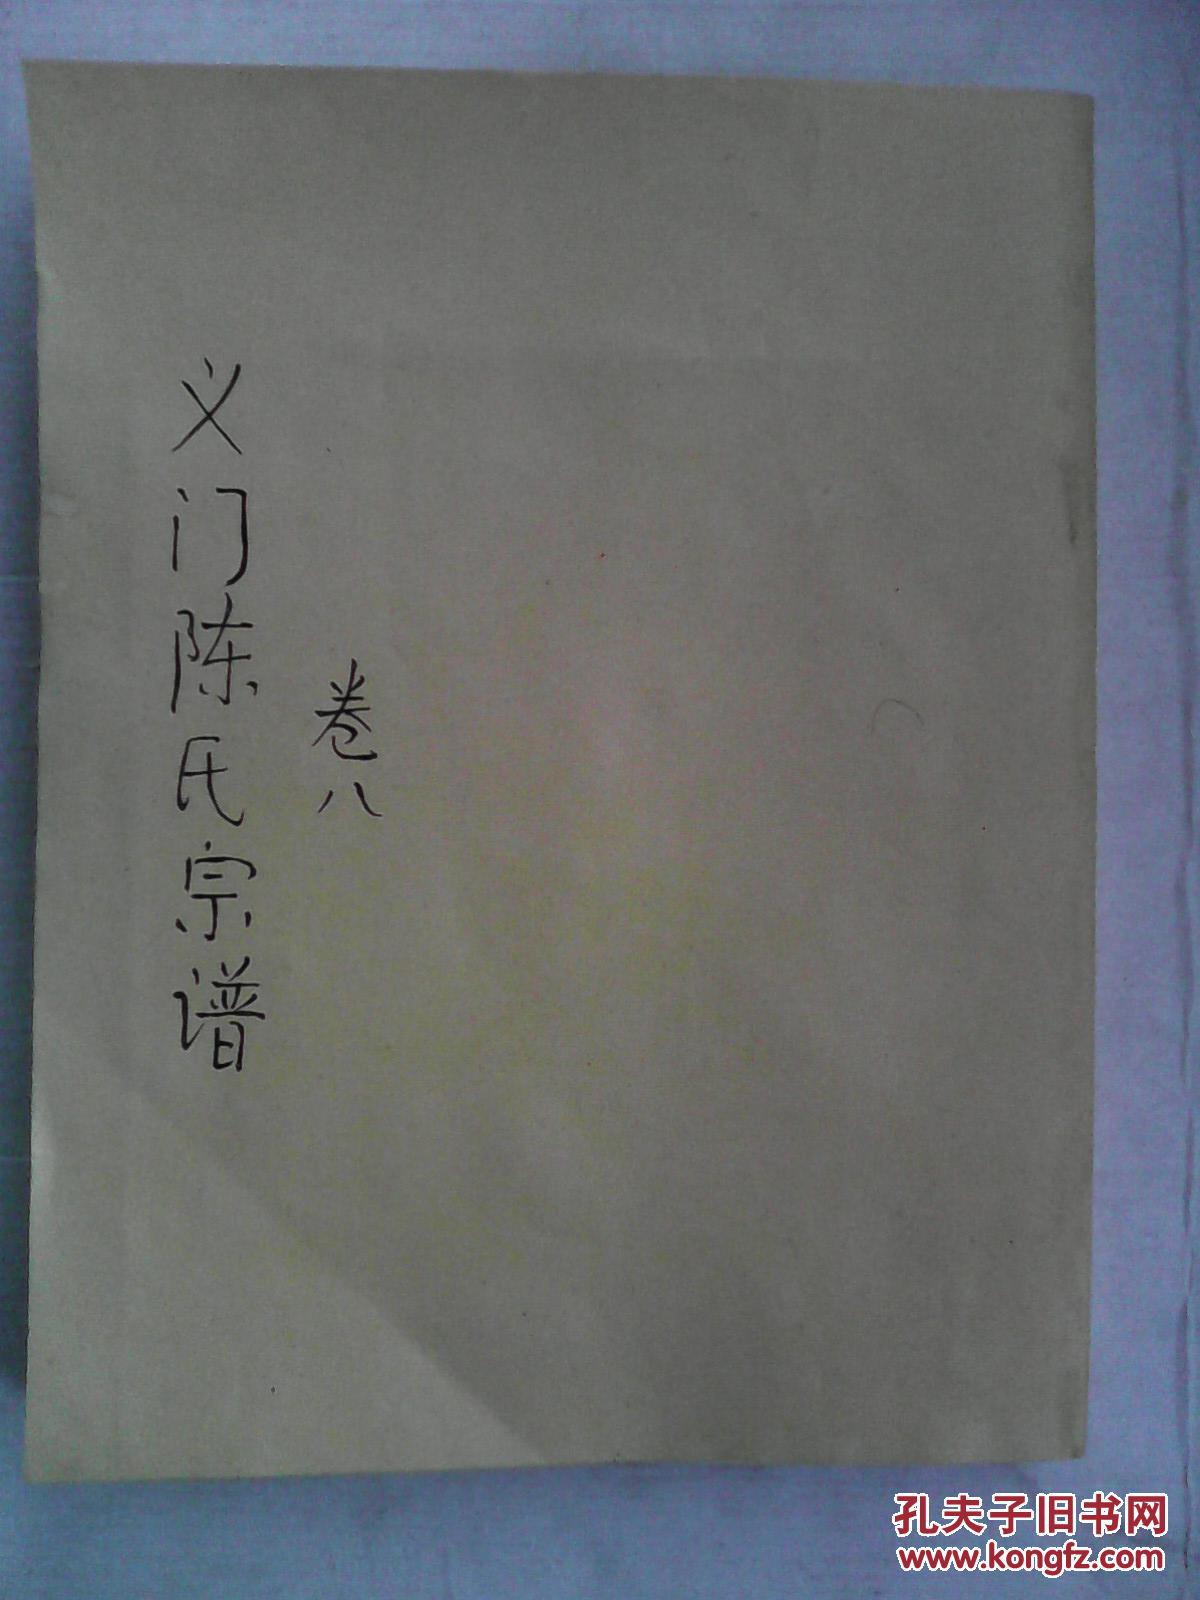 义门陈氏宗谱
卷八
孔夫子旧书网
www.kongfz.com